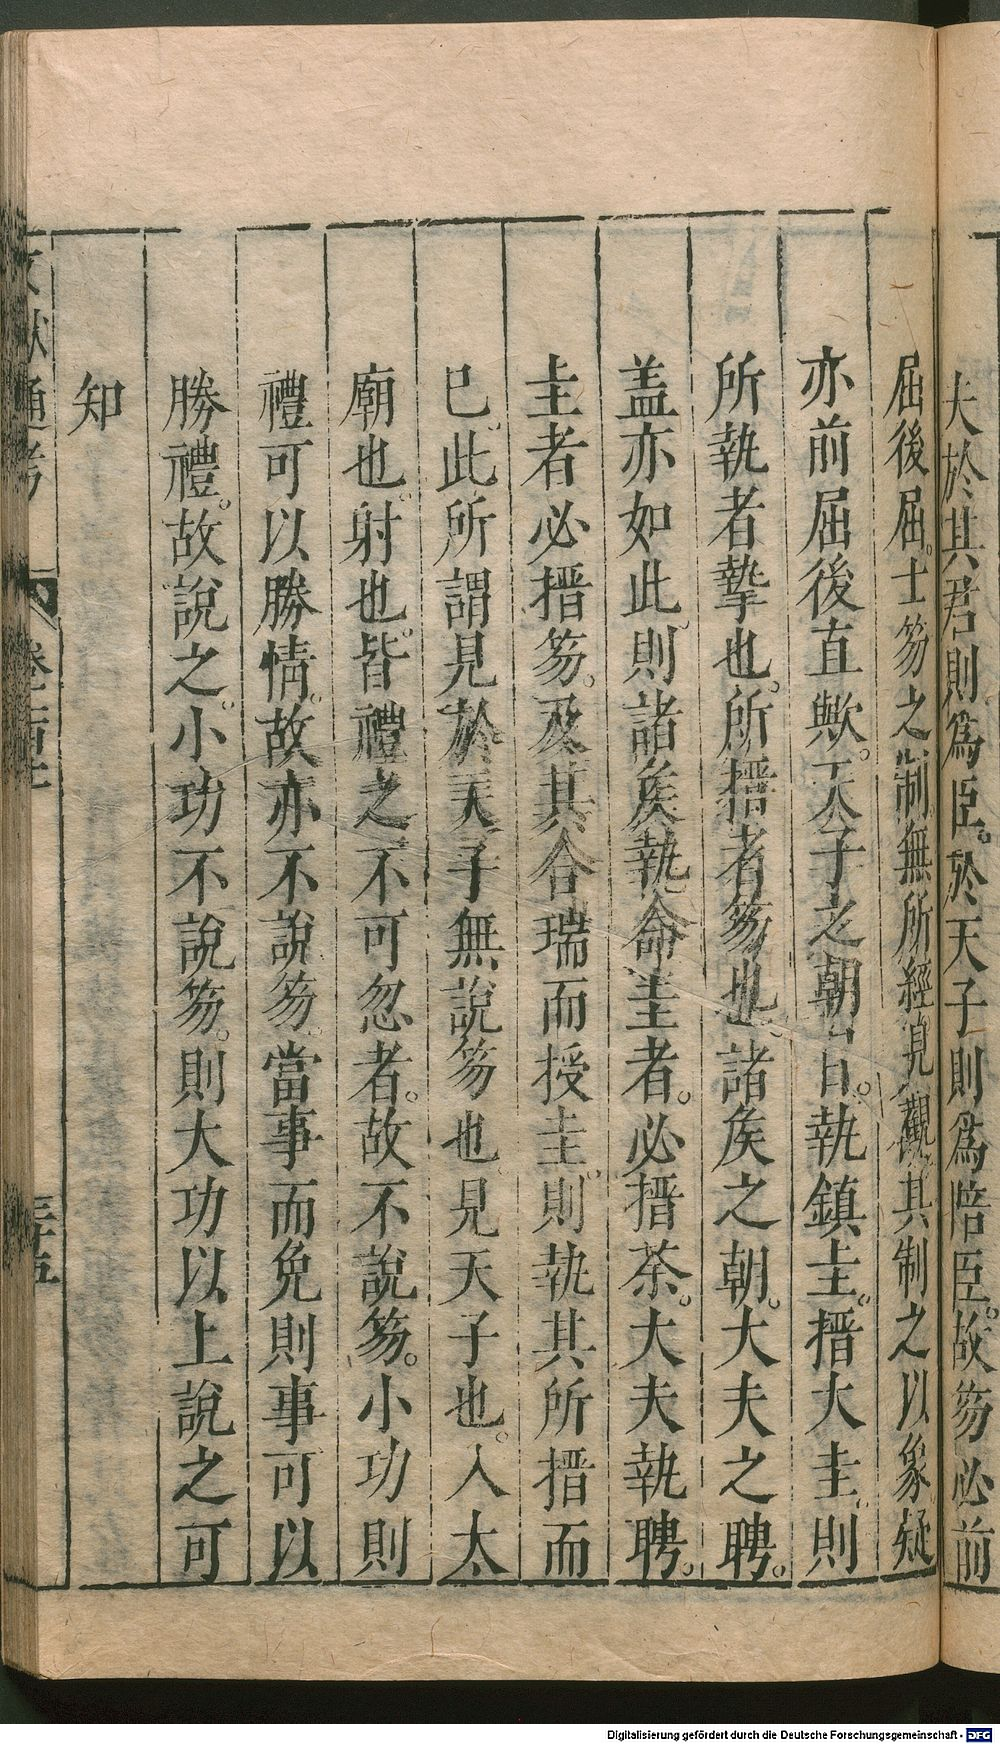 夫於其君則爲臣。於天子則爲陪臣。故笏必前
屈後屈。士笏之制無所經見觀其制之以象疑
亦前屈後直歟。天子之朝日。執鎮圭。搢大圭。則
所執者摯也。所搢者笏也。諸矦之朝。大夫之聘。
盖亦如此。則諸矦執命圭者。必搢荼。大夫執聘。
圭者必搢笏。及其合瑞而授圭。則執其所搢而
已。此所謂見於天子無說笏也。見天子也。入太
廟也。射也。皆禮之不可忽者。故不說笏。小功則
禮可以勝情。故亦不說笏。當事而免則事可以
勝禮。故說之。小功不說笏。則大功以上說之可
知
文獻通考
Digitalisierung gefördert durch die Deutsche Forschungsgemeinschaft - DFG